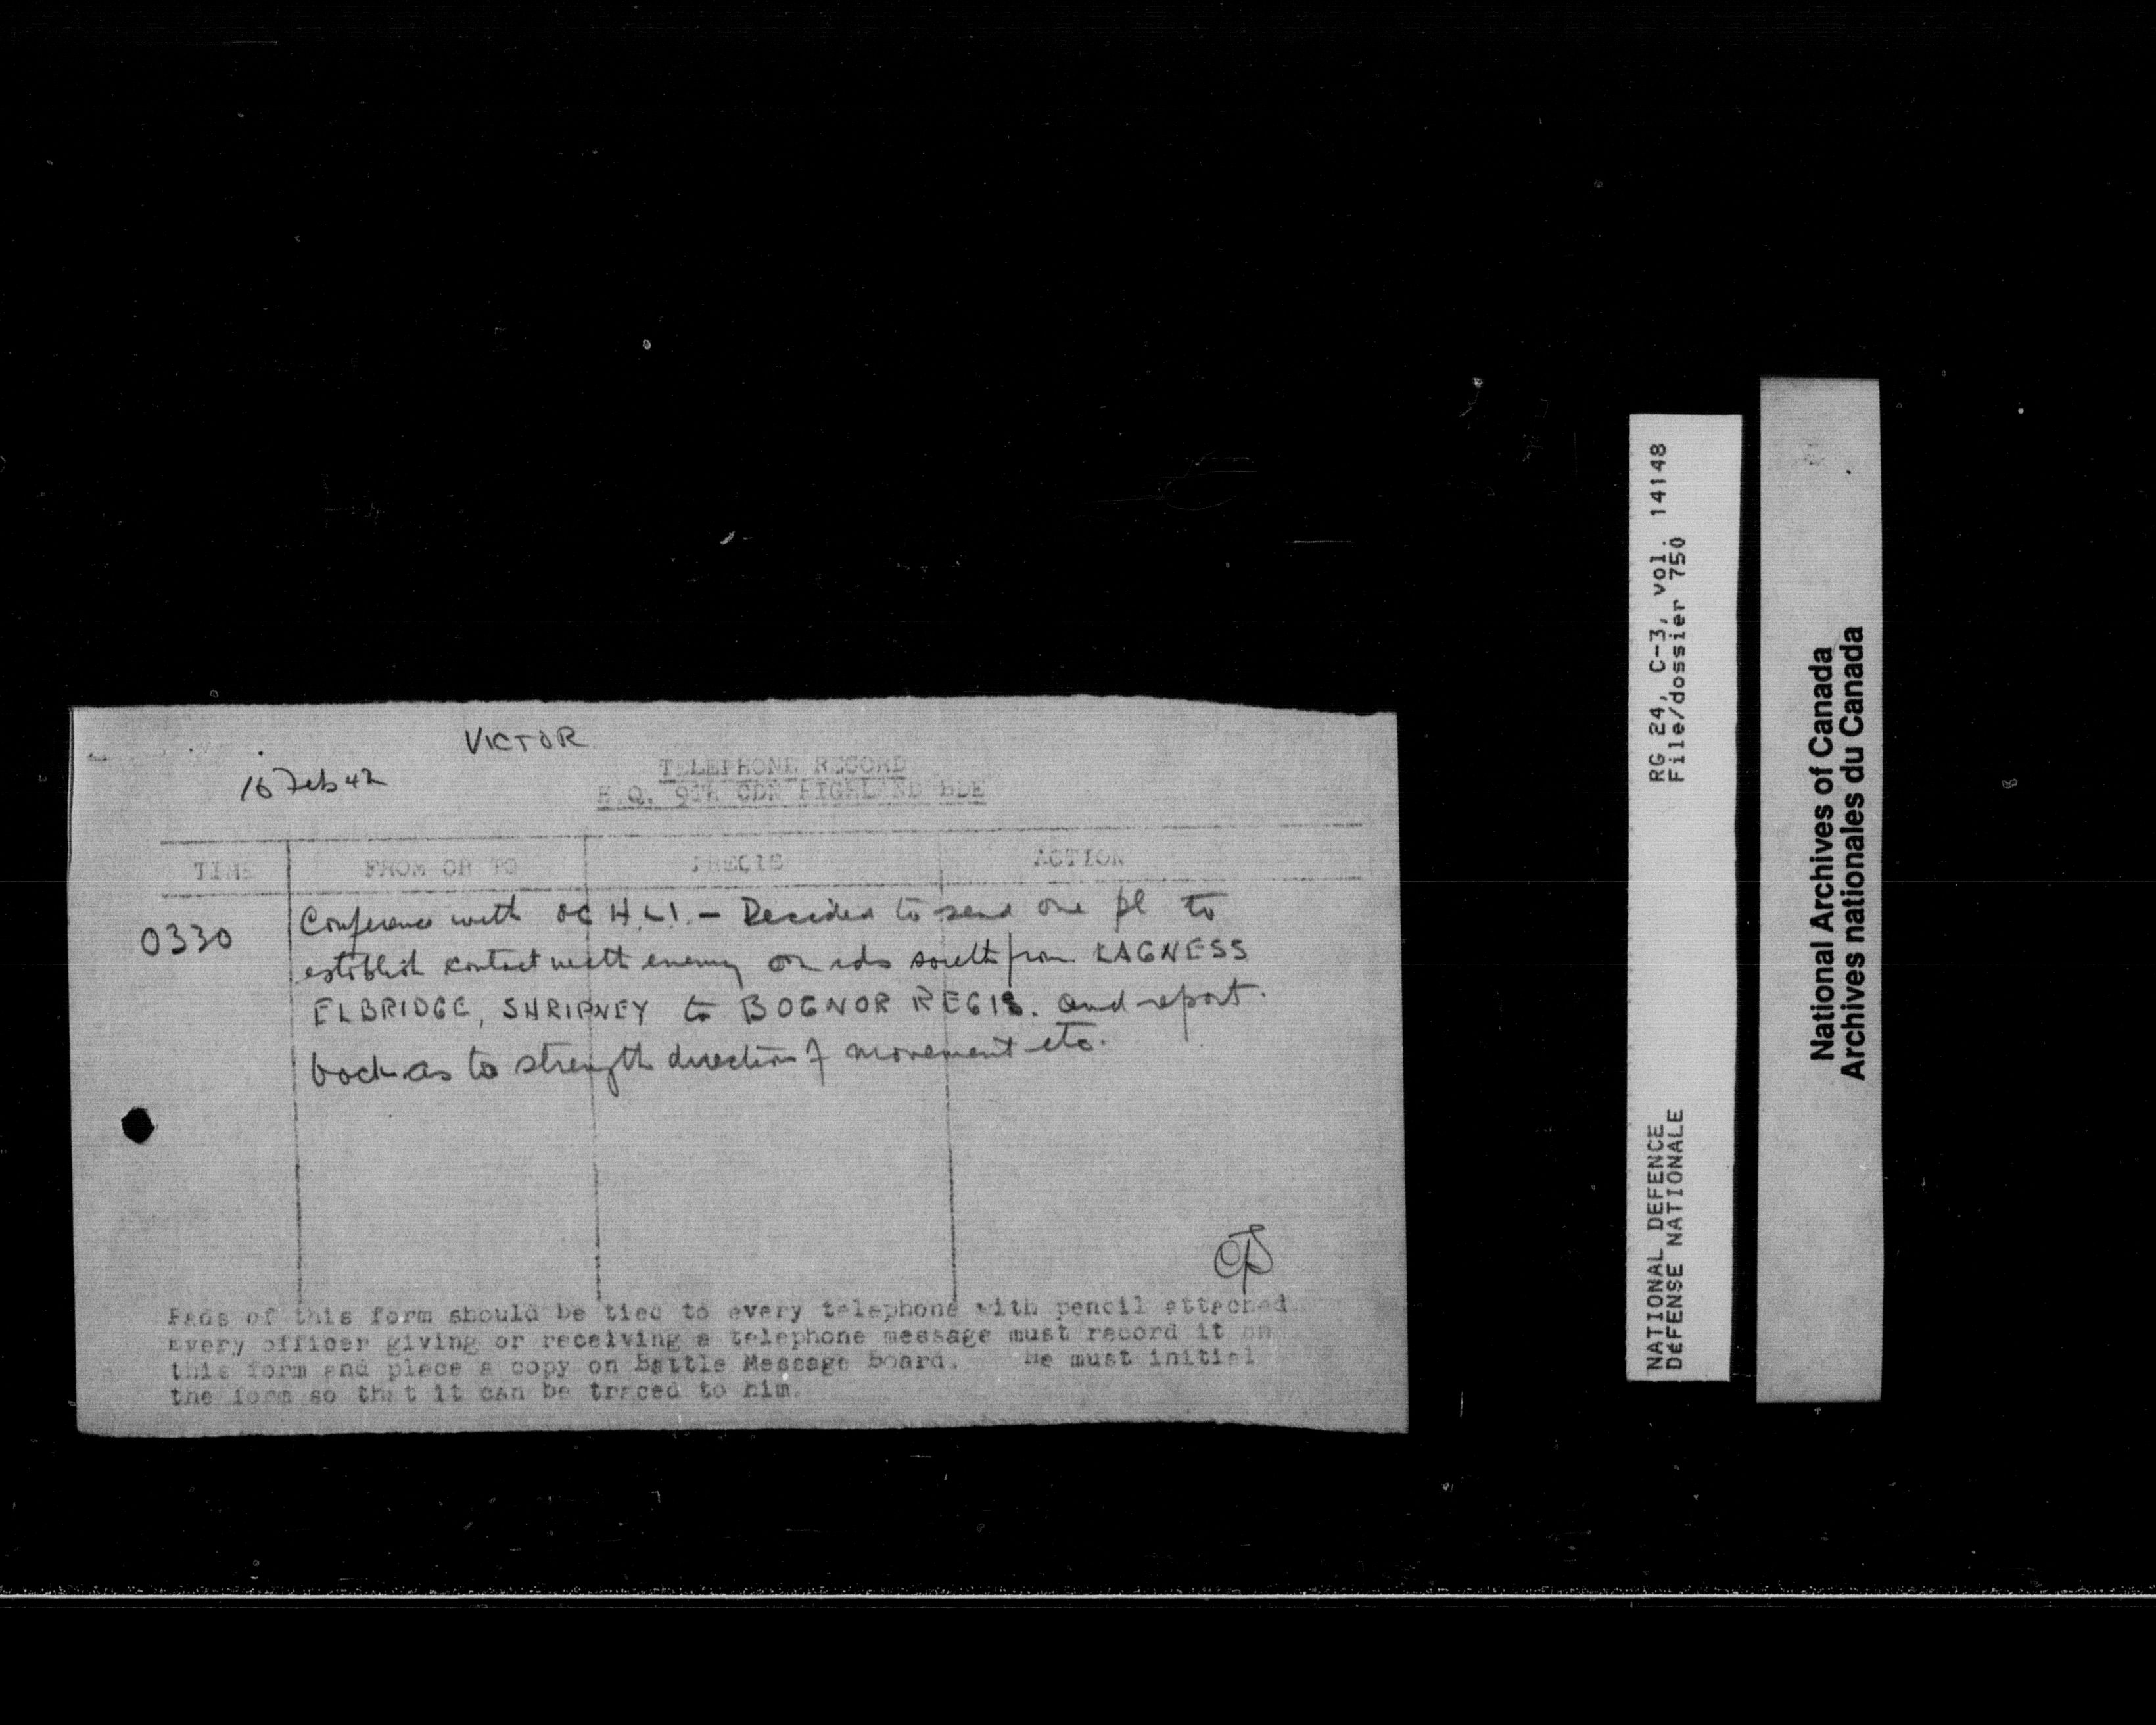 VICTOR
16 Feb 42
TELEPHONE RECORD
H.Q. 9TH CDN HIGHLAND BDE
TIME FROM OR TO PRECIS ACTION
0330 Conference with OC H.L.I. - Decided to send one pl to
establish contact with enemy on rds south from LAGNESS
ELBRIDGE, SHRIPNEY to BOGNOR REGIS. and report.
back as to strength direction of movement etc.
Pads of this form should be tied to every telephone with pencil attached.
Every officer giving or receiving a telephone message must record it on
this form and place a copy on Battle Message Board. He must initial
the form so that it can be traced to him.
RG 24, C-3, vol. 14148
File/dossier 750
NATIONAL DEFENCE
DÉFENSE NATIONALE
National Archives of Canada
Archives nationales du Canada